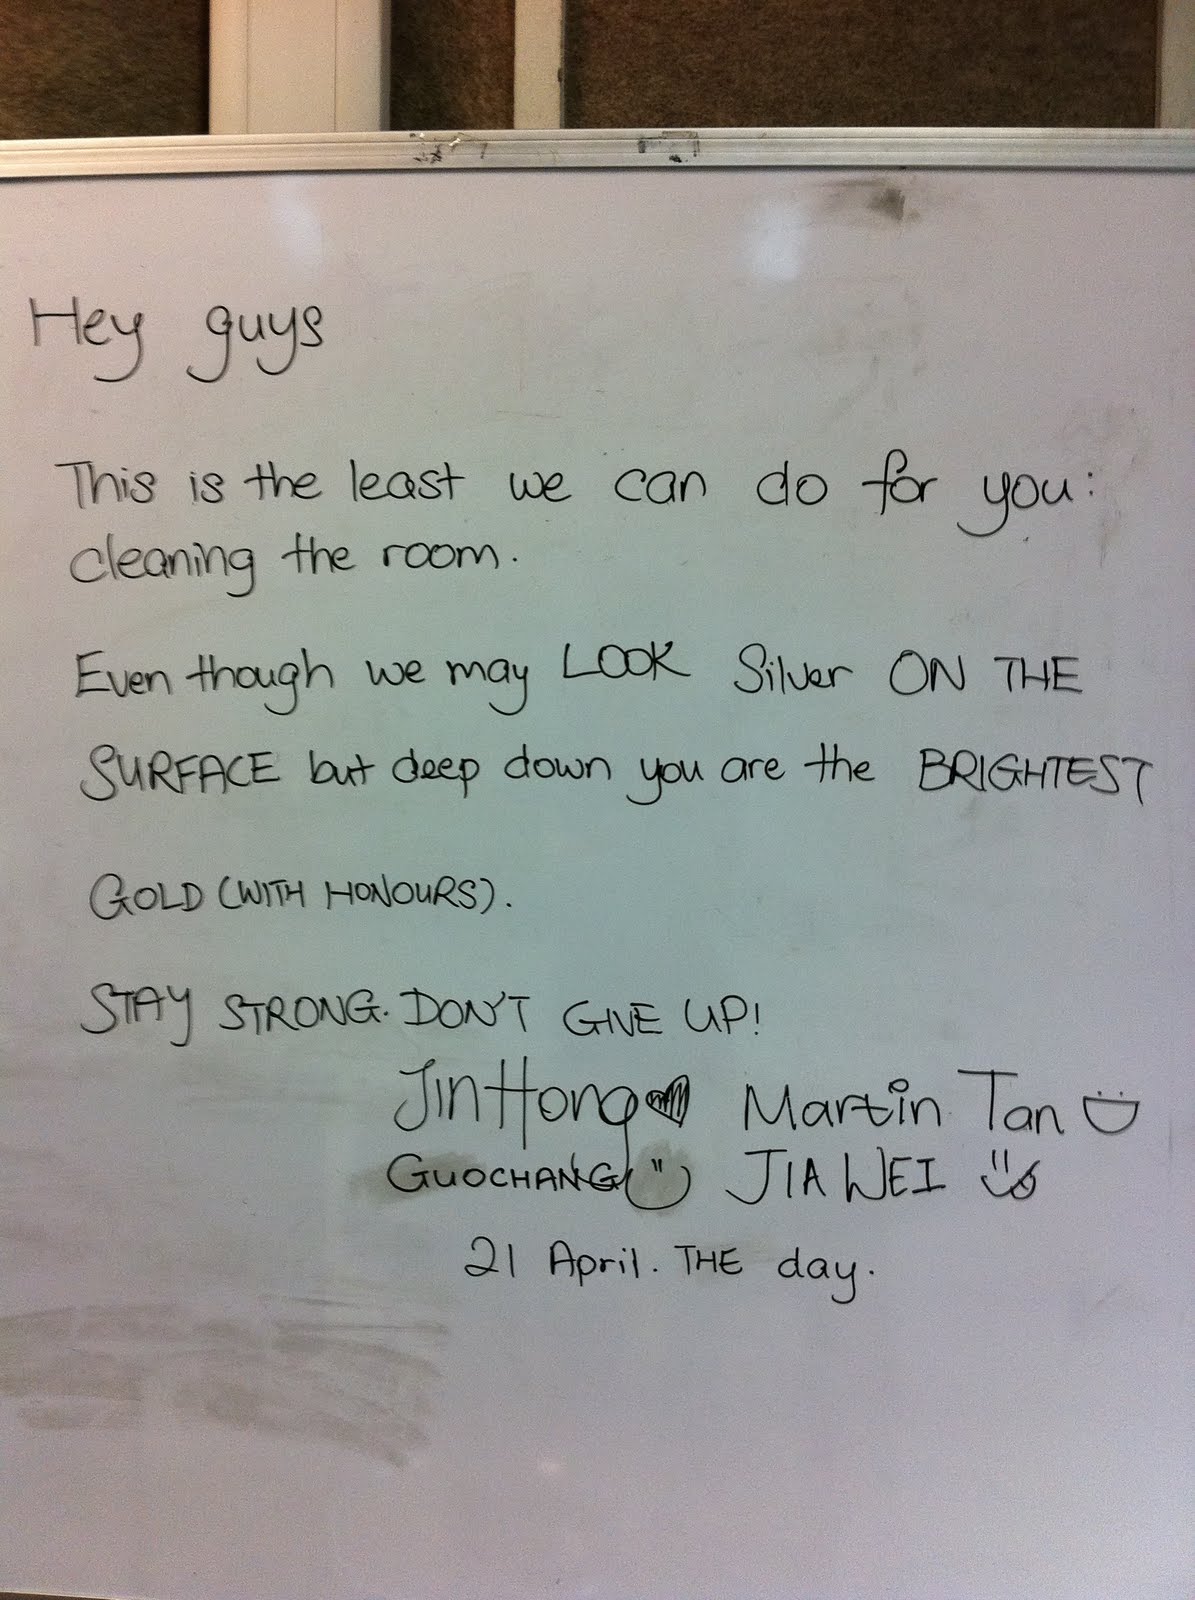 Hey guys
This is the least we can do for you:
cleaning the room.
Even though we may LOOK Silver ON THE
SURFACE but deep down you are the BRIGHTEST
GOLD (WITH HONOURS).
STAY STRONG. DON'T GIVE UP!
JinHong Martin Tan
GUOCHANG JIA WEI
21 April. THE day.